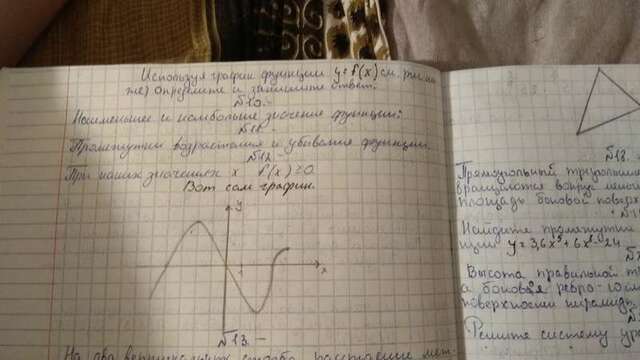 Используя график функции y=f(x) см. рис. ни
же) определите и запишите ответ.
№10.-
Наименьшее и наибольшее значение функции;
№11.-
Промежутки возрастания и убывания функции.
№12.-
При каких значениях x f(x)≥0
Вот сам график.
y
1
x
№13.-
На два вертикальных столба расстояние меж-
№18.
Прямоугольный треугольни
вращается вокруг
площадь боковой поверх
Найдите промежутки
ции y=3,6x⁵+6x⁶-24
Высота правильной т
а боковая ребро-10см
поверхности пирамиды
Решите систему ур